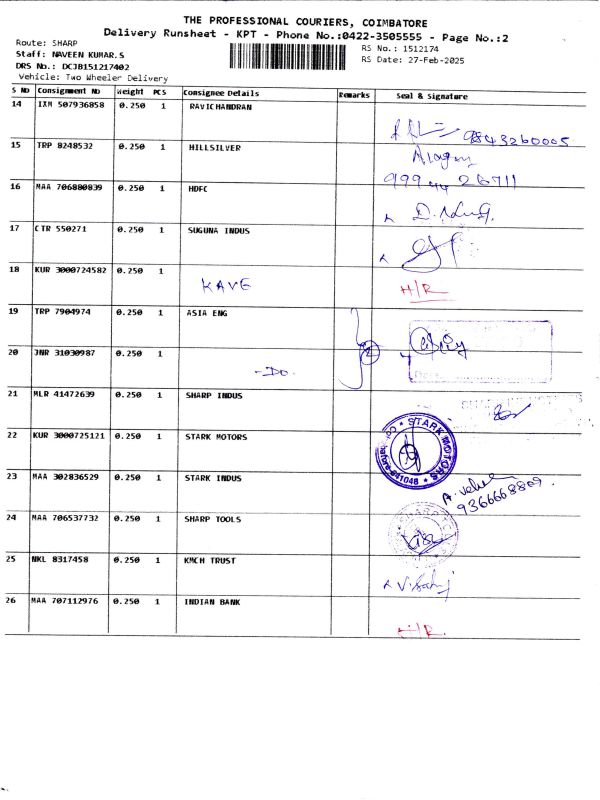 THE PROFESSIONAL COURIERS, COIMBATORE
Delivery Runsheet - KPT - Phone No.:0422-3505555 - Page No.:2
Route: SHARP
Staff: NAVEEN KUMAR.S
DRS No.: DCJB151217402
Vehicle: Two Wheeler Delivery
RS No.: 1512174
RS Date: 27-Feb-2025
S No Consignment No Weight PCS Consignee Details Remarks Seal & Signature
14 IXM 507936858 0.250 1 RAVICHANDRAN
9843260005
15 TRP 8248532 0.250 1 HILLSILVER
999 44 26711
16 MAA 706880839 0.250 1 HDFC
17 CTR 550271 0.250 1 SUGUNA INDUS
18 KUR 3000724582 0.250 1 KAVE H/R
19 TRP 7904974 0.250 1 ASIA ENG
20 JNR 31030987 0.250 1 -Do- 2
21 MLR 41472639 0.250 1 SHARP INDUS
22 KUR 3000725121 0.250 1 STARK MOTORS
STARK MOTORS
641048
23 MAA 302836529 0.250 1 STARK INDUS
9366668809
24 MAA 706537732 0.250 1 SHARP TOOLS
SHARP TOOLS
25 NKL 8317458 0.250 1 KMCH TRUST
26 MAA 707112976 0.250 1 INDIAN BANK
H/R